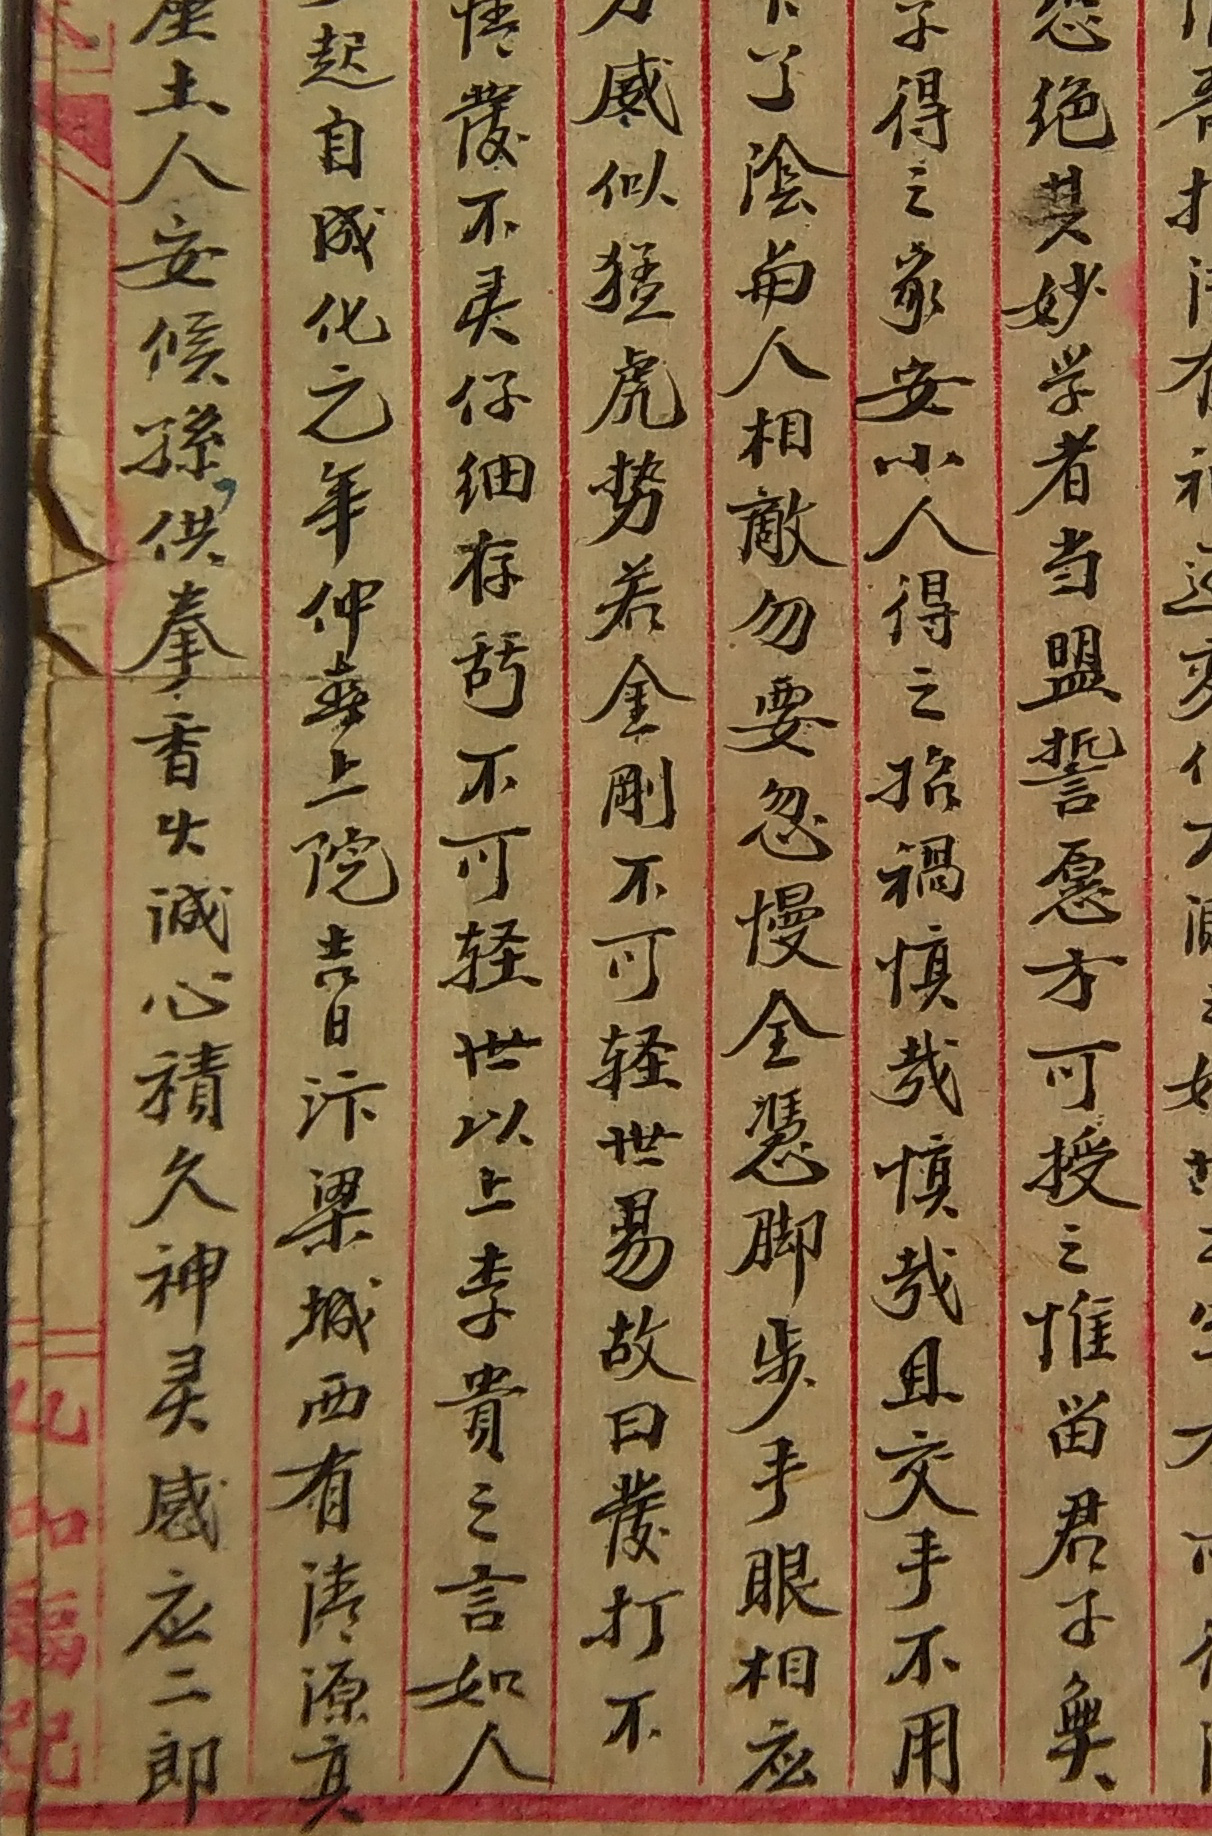 绝其妙学者当盟誓愿才可授之惟留君子無
子得之家安小人得之招祸慎哉慎哉且交手不用
了陰与人相敵勿要忽慢全憑脚步手眼相应
威似猛虎势若金剛不可轻世易故曰發打不
情發不灵仔细存 不可轻世以上李貴之言如人
起自成化之年仲 上院吉日汴梁城西有清源真
座土人安候孫供奉香火誠心積久神灵感应二郎